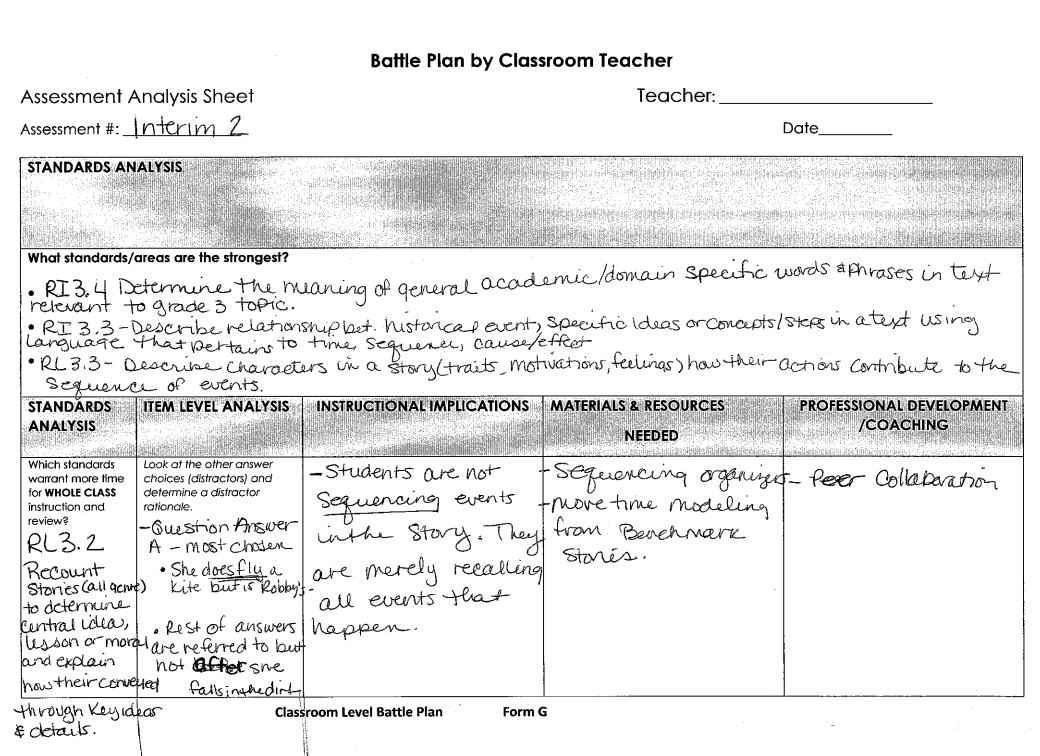 Battle Plan by Classroom Teacher
Assessment Analysis Sheet
Teacher:
Assessment #: Interim 2
Date
STANDARDS ANALYSIS
What standards/areas are the strongest?
• RI3.4 Determine the meaning of general academic/domain specific words & phrases in text
relevant to grade 3 topic.
• RI 3.3 - Describe relationship bet. historical event, specific ideas or concepts/steps in a text using
language that pertains to time, sequence, cause/effect
• RL3.3 - Describe characters in a story (traits, motivations, feelings) how their actions contribute to the
sequence of events.
STANDARDS
ANALYSIS
Which standards
warrant more time
for WHOLE CLASS
instruction and
review?
RL3.2
Recount
Stories (all genre)
to determine
central idea,
lesson or moral
and explain
how their conveyed
through Key ideas
& details.
ITEM LEVEL ANALYSIS
Look at the other answer
choices (distractors) and
determine a distractor
rationale.
- Question Answer
A - most chosen
• She does fly a
kite but is Robby's -
• Rest of answers
are referred to but
not after she
falls in the dirt
INSTRUCTIONAL IMPLICATIONS
- Students are not
sequencing events
in the Story. They
are merely recalling
all events that
happen.
MATERIALS & RESOURCES
NEEDED
- Sequencing organizers
- more time modeling
from Benchmark
Stories.
PROFESSIONAL DEVELOPMENT
/COACHING
- Peer Collaboration
Classroom Level Battle Plan Form G